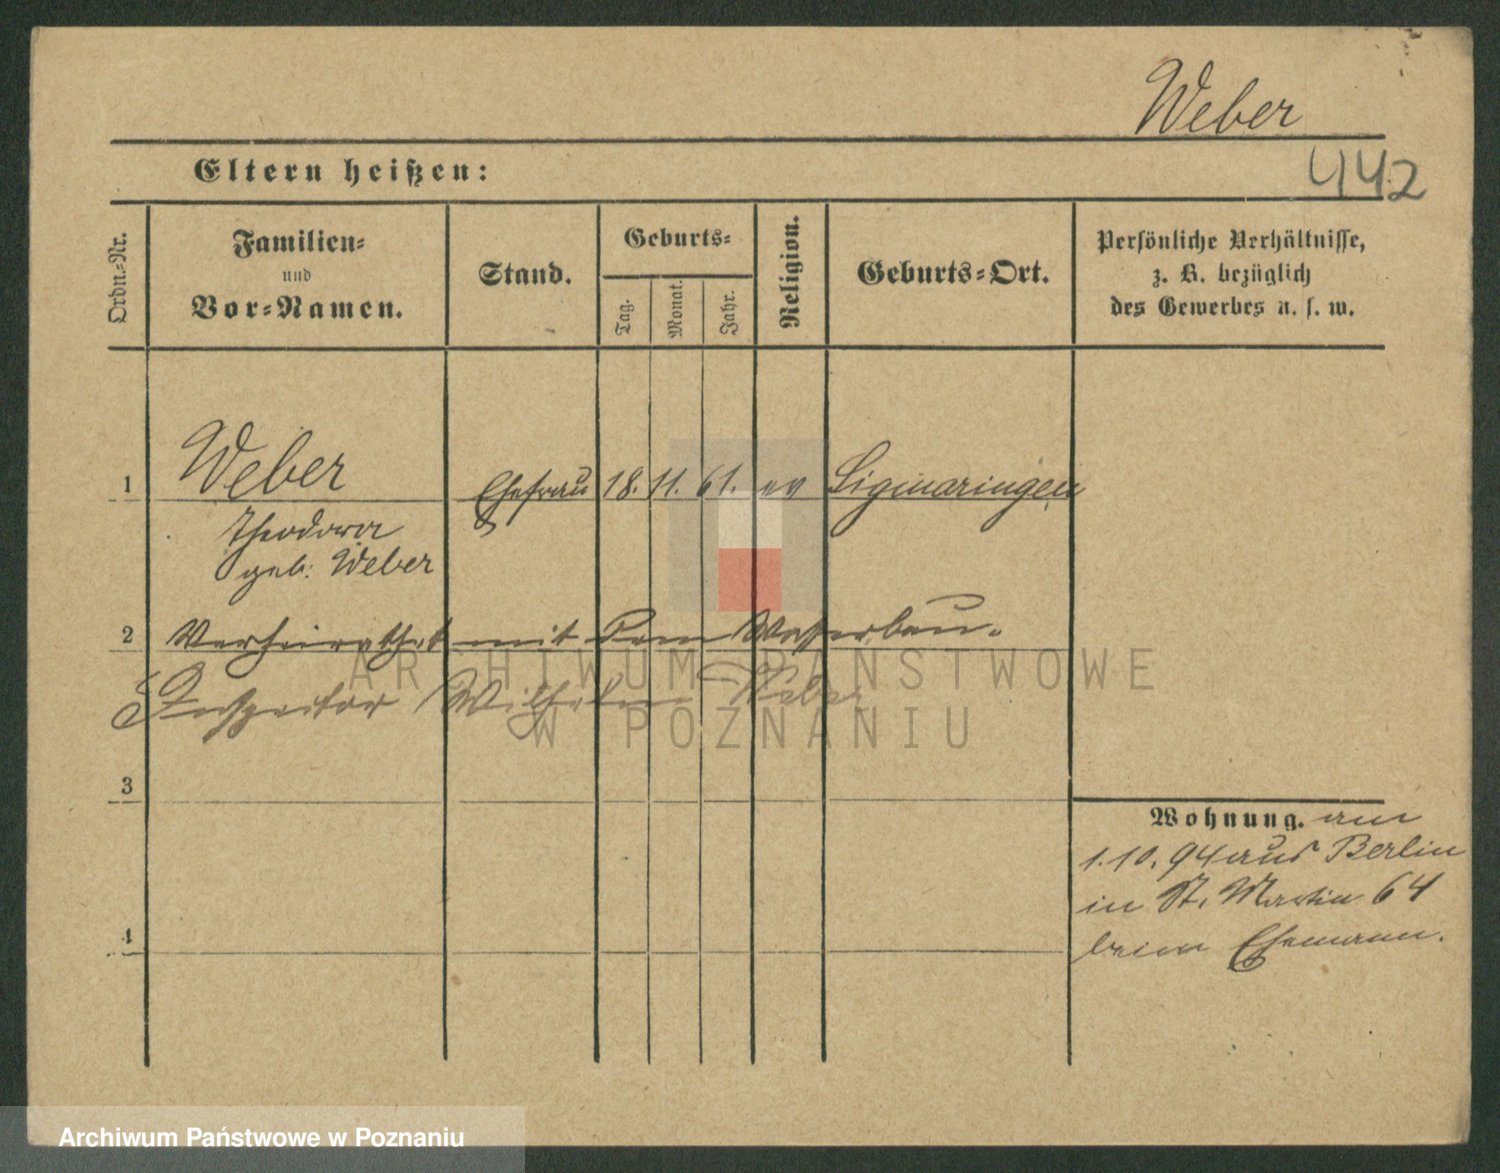 Weber
442
Eltern heißen:
Ordn.-Nr.
Familien-
und
Vor-Namen.
Stand.
Geburts-
Tag.
Monat.
Jahr.
Religion.
Geburts-Ort.
Persönliche Verhältnisse,
z. B. bezüglich
des Gewerbes u. s. w.
1 Weber Ehefrau 18. 11. 61. ev Sigmaringen
Theodora
geb: Weber
2 Verheirathet mit dem Wasserbau-
Inspector Wilhelm Weber
3
4
Wohnung. am
1.10.94 aus Berlin
in St. Martin 64
beim Ehemann.
ARCHIWUM PAŃSTWOWE
W POZNANIU
Archiwum Państwowe w Poznaniu